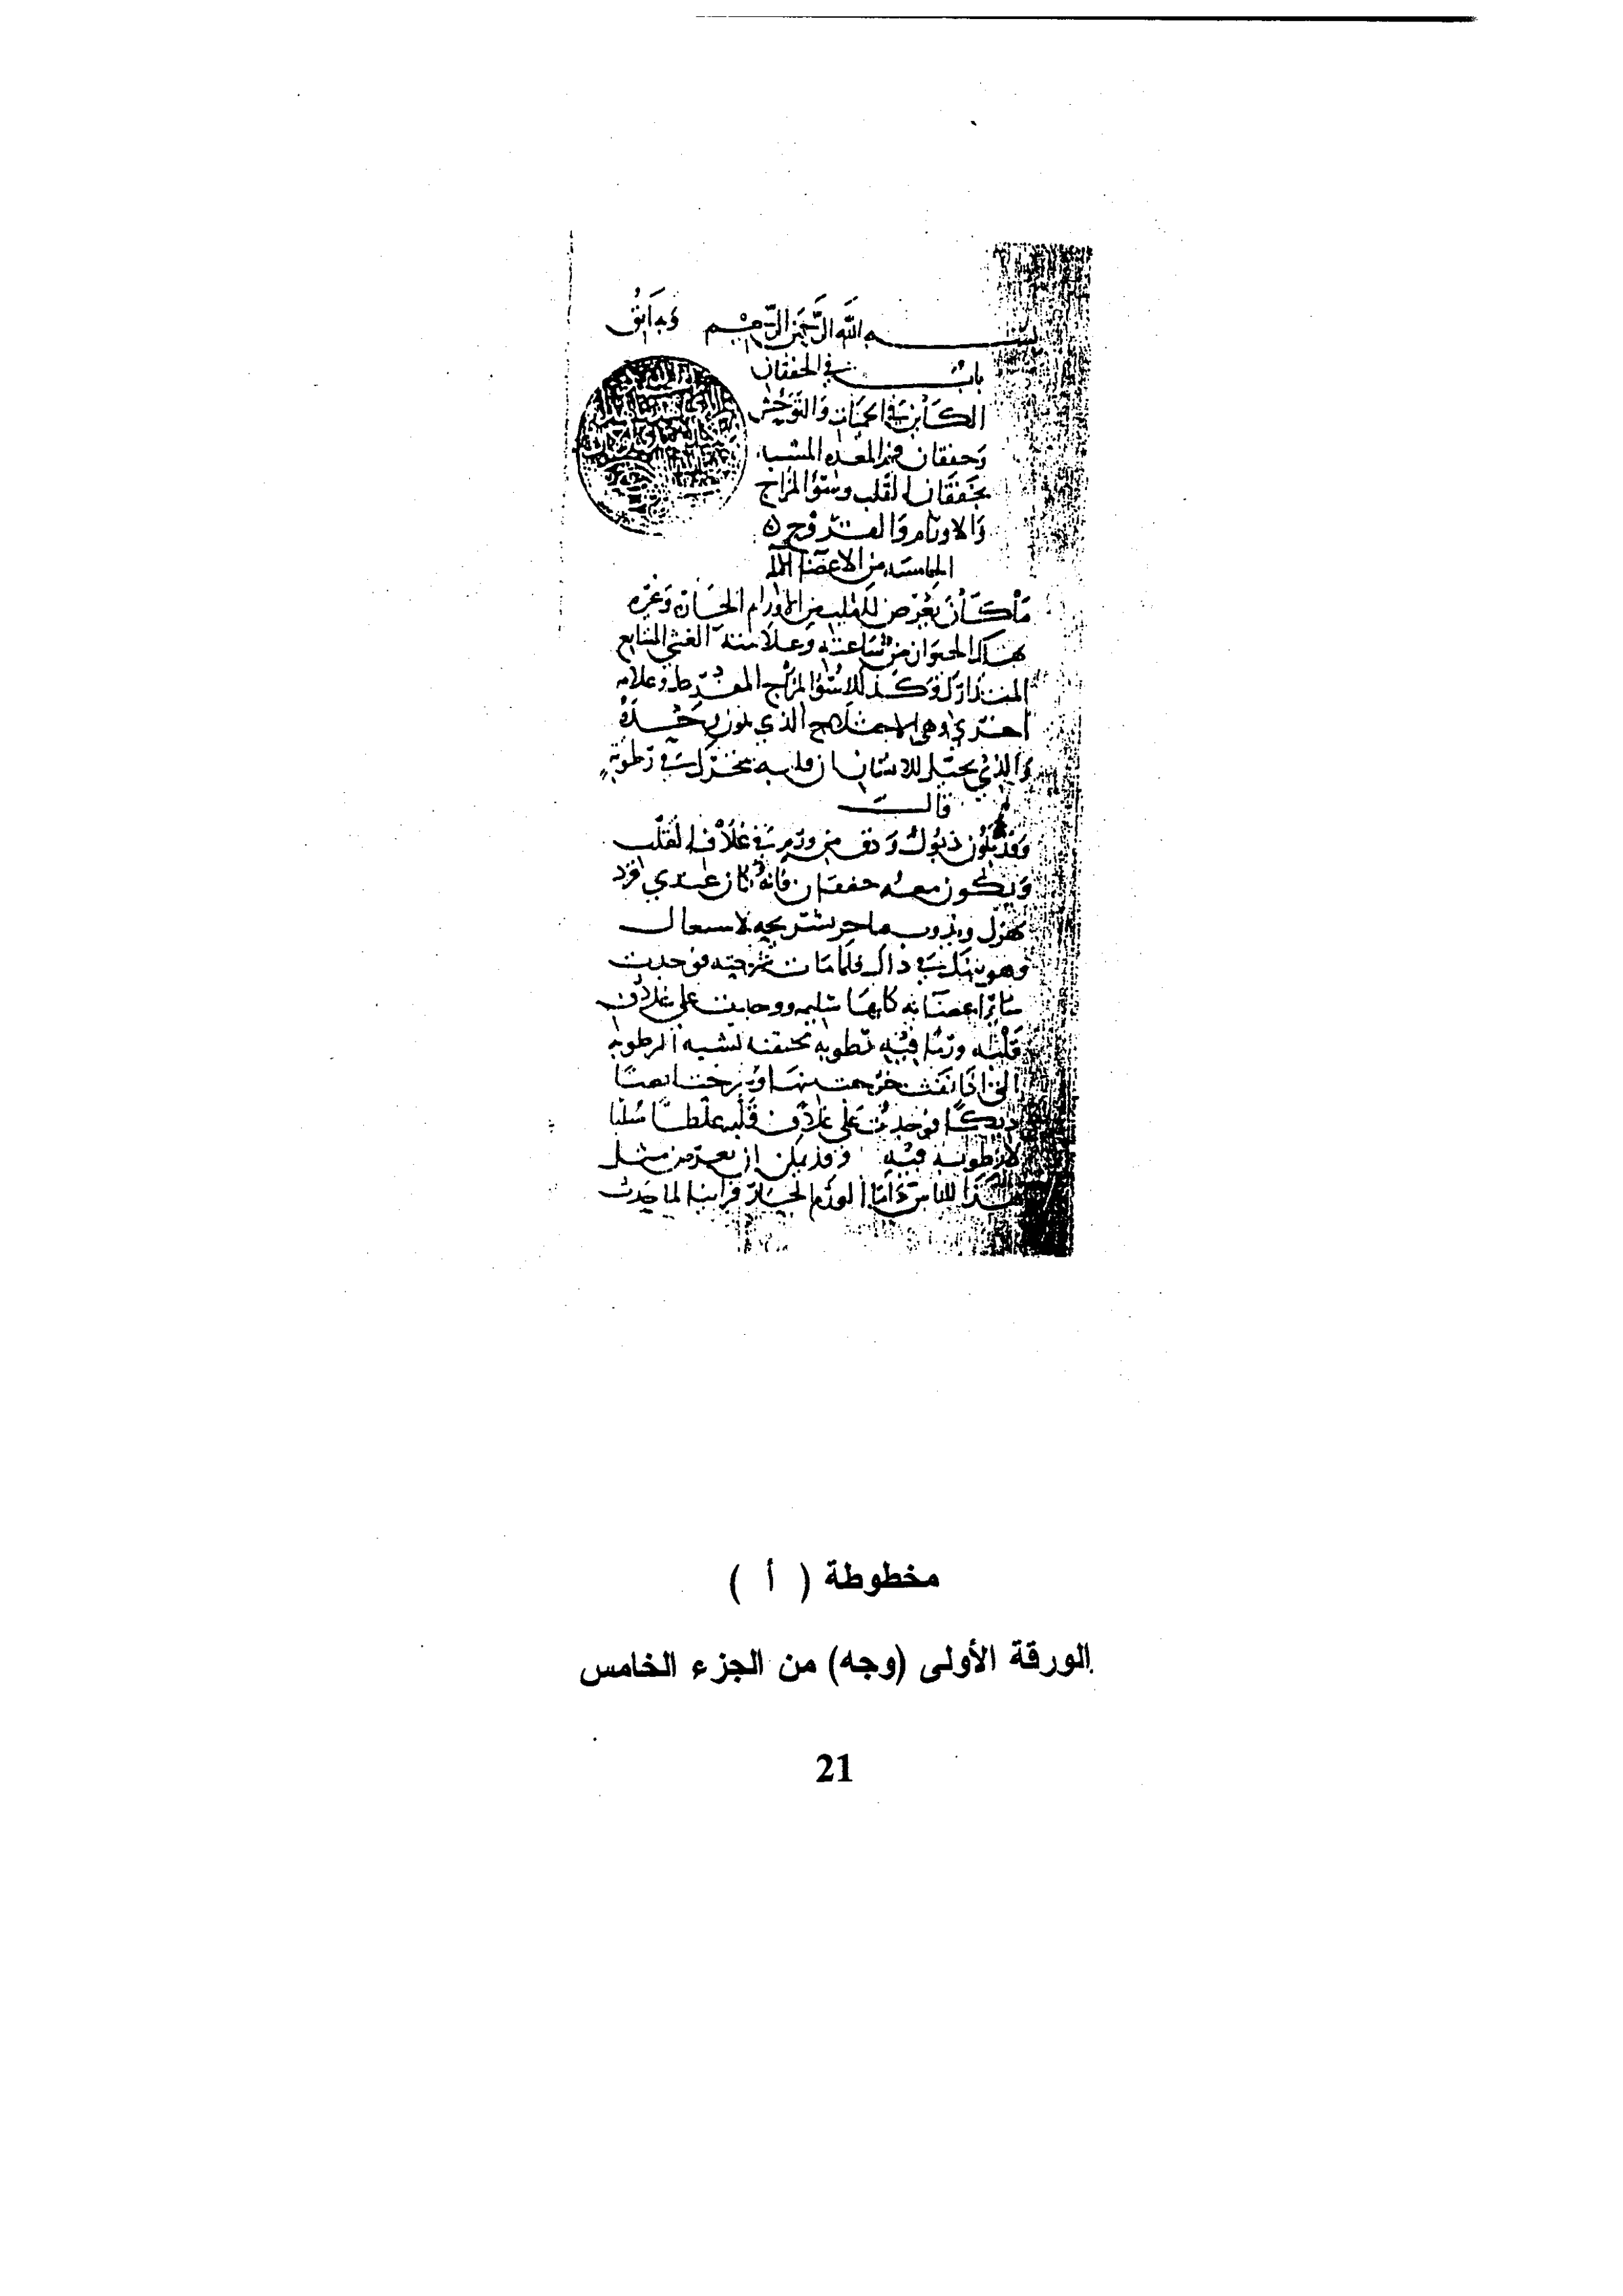 بسم الله الرحمن الرحيم وبه اثق
باب في الخفقان
الكائن في الحميات والتوحش
وخفقان فم المعده المشبه
بخفقان القلب وسوء المزاج
والاورام والقروح
الخامسه من الاعضا الالمه
ما كان يعرض للقلب من الاورام الحاره وغيره
هلك الحيوان من ساعته وعلامته الغشي المتتابع
المتدارك وكذلك سوء المزاج المفرط وعلامه
اخرى وهي الاختلاج الذي يكون وحده
والذي يخيل للانسان ان قلبه يتحرك في رطوبه
قال
وقد يكون ذبول ودق من ورم في غلاف القلب
ويكون معه خفقان فانه كان عندي قرد
يهزل ويذوب
وهو في ذلك فلما مات شرحته فوجدت
سائر اعضائه كلها سليمه ووجدت على غلاف
قلبه ورما فيه رطوبه تشبه الرطوبه
التي اذا خرجت منها وشرحت ايضا
ديكا فوجدت على غلاف قلبه غلظا صلبا
لا رطوبه فيه وقد يمكن ان يعرض مثل
هذا للناس واما الورم الحار فراينا لما حدث
مخطوطة ( أ )
الورقة الأولى (وجه) من الجزء الخامس
21